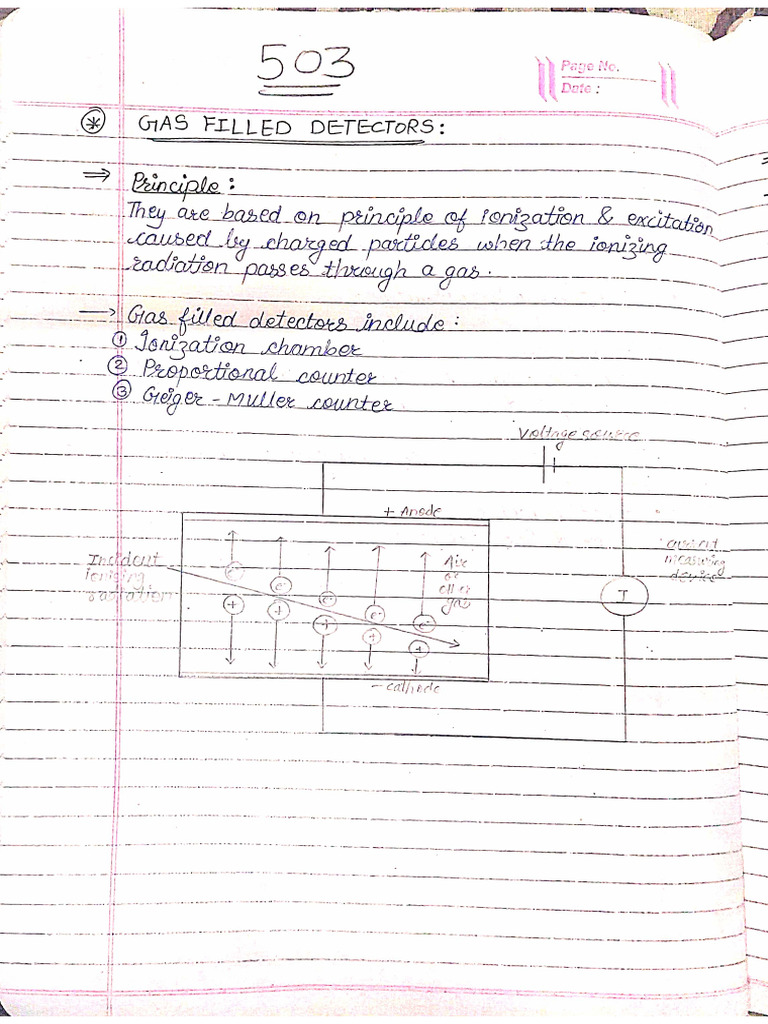 503
Page No.
Date :
* GAS FILLED DETECTORS:
⇒ Principle :
They are based on principle of ionization & excitation
caused by charged particles when the ionizing
radiation passes through a gas.
→ Gas filled detectors include :
① Ionization chamber
② Proportional counter
③ Geiger - Muller counter
Voltage source
+ Anode
Incident
ionizing
radiation
Air
or
other
gas
current
measuring
device
I
e- e- e- e- e-
+ + + + +
- cathode